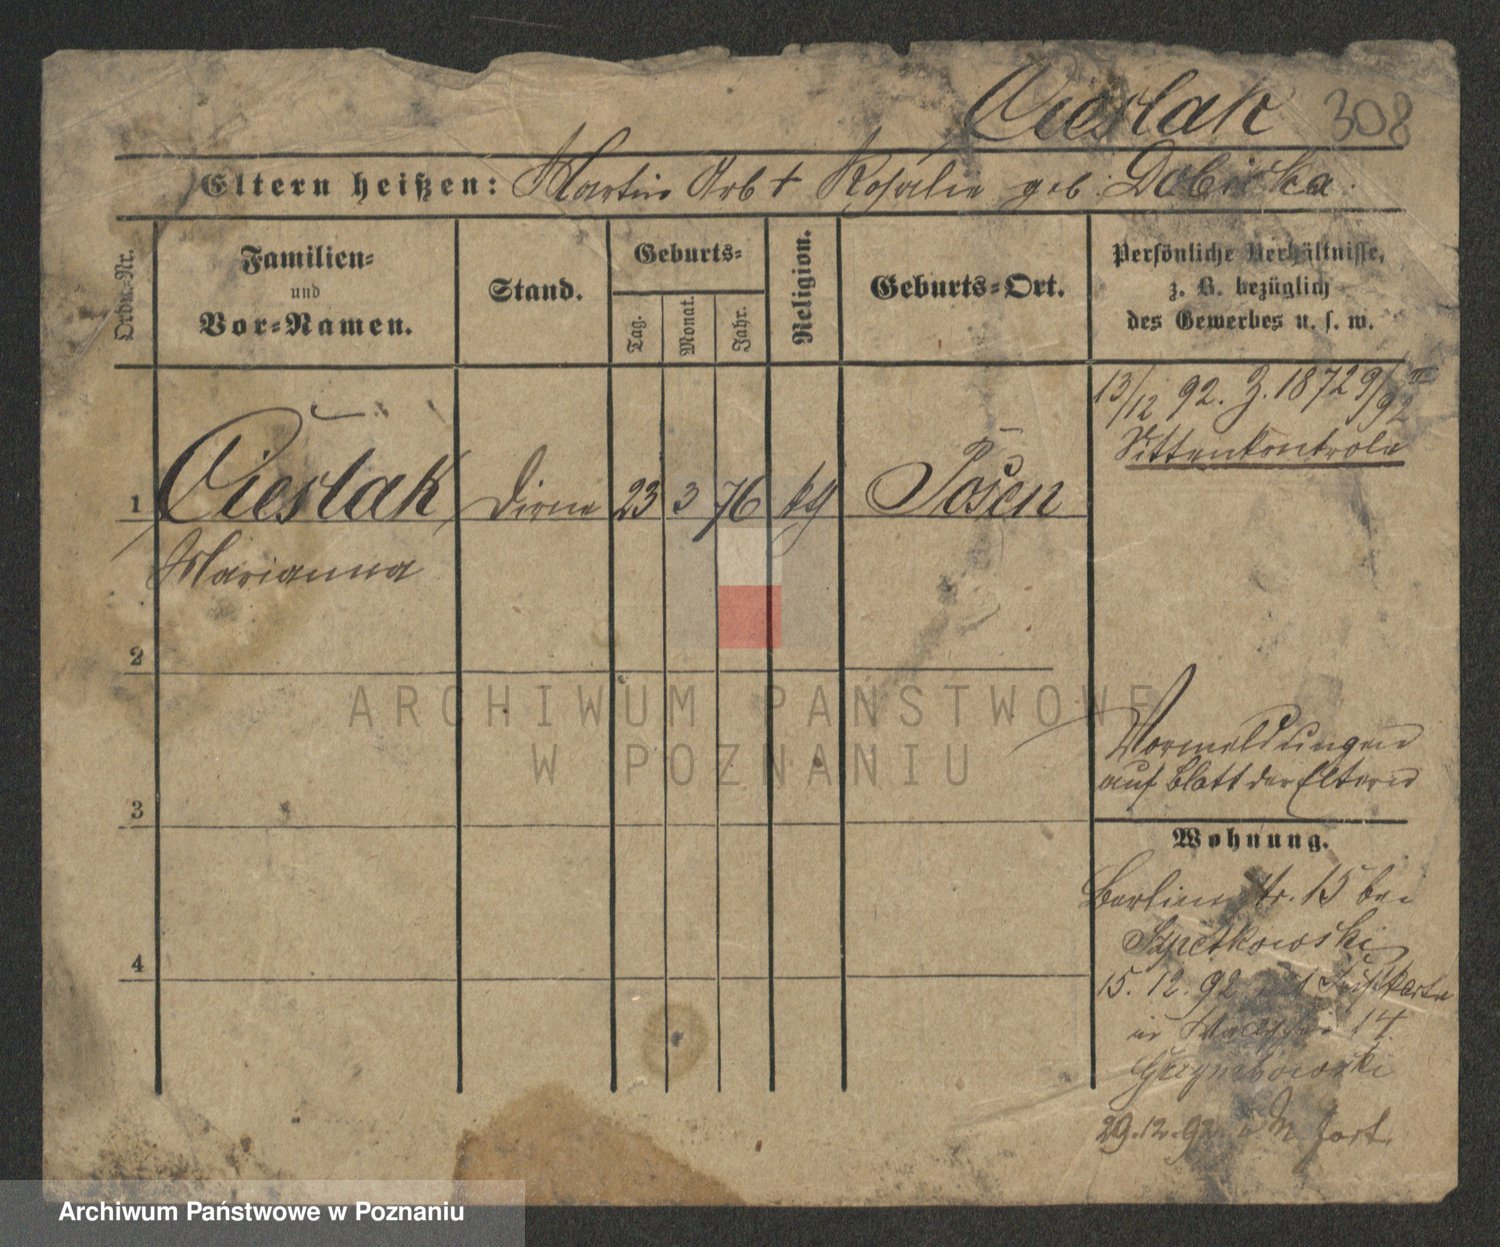 Cieslak 308
Eltern heißen: Martin Arb + Rosalie geb. Dobicka.
Ordn.-Nr.
Familien-
und
Vor-Namen.
Stand.
Geburts-
Tag.
Monat.
Jahr.
Religion.
Geburts-Ort.
Persönliche Verhältnisse,
z. B. bezüglich
des Gewerbes u. s. w.
13/12 92. Z. 1872 9/92 III
Sittenkontrole
1 Cieslak Dirne 23 3 76 kg Posen
Marianna
2
3
4
Vormeldungen
auf Blatt der Eltern
Wohnung.
Berlinerstr. 15 bei
15. 12. 92
14
Grzymbowski
29.12.92 fort.
ARCHIWUM PAŃSTWOWE
W POZNANIU
Archiwum Państwowe w Poznaniu